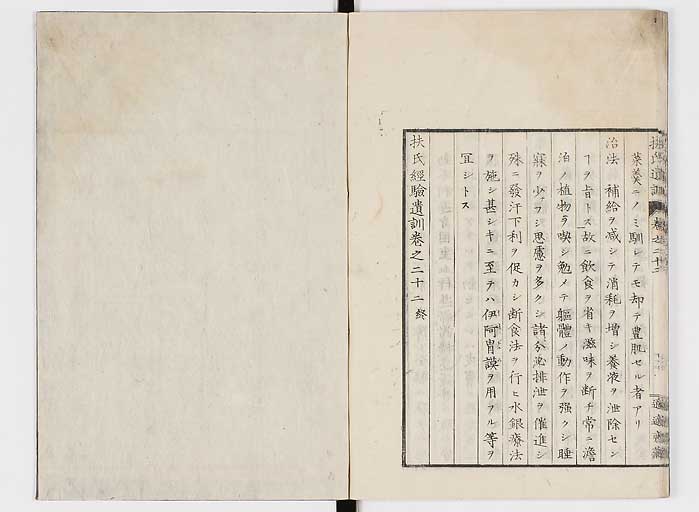 扶氏遺訓 卷之二十二
菜羹ニノミ馴レテモ却テ豊肌セル者アリ
治法 補給ヲ减シテ消耗ヲ増シ養液ヲ泄除セン
ヿヲ旨トス故ニ飲食ヲ省キ滋味ヲ断チ常ニ澹
泊ノ植物ヲ喫シ勉メテ軀體ノ動作ヲ强クシ睡
寐ヲ少フシ思慮ヲ多クシ諸分泌排泄ヲ催進シ
殊ニ發汗下利ヲ促カシ断食法ヲ行ヒ水銀療法
ヲ施シ甚シキニ至テハ伊阿胃謨ヲ用フル等ヲ
宜シトス
扶氏經驗遺訓卷之二十二 終